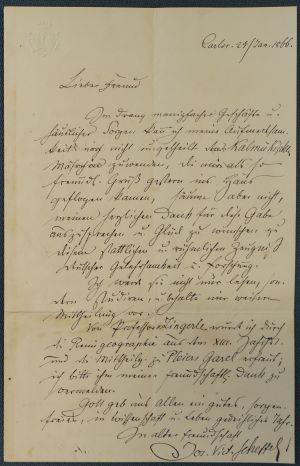 Carlsr. 24/Jan. 1866.
Lieber Freund
Im Drang manigfacher Geschäfte u.
häuslicher Sorgen kann ich meine Aufmerksam-
keit noch nicht ungetheilt den Kalmükischen
Märchen zuwenden, die mir als so
freundl. Gruß gestern ins Haus
geflogen kamen, säume aber nicht,
meinen herzlichen Dank für diese Gabe
auszusprechen u. Glück zu wünschen zu
diesem stattlichen u. rühmlichen Zeugniß
deutscher Gelehrsamkeit u. Forschung.
Ich werd sie nicht nur lesen, son-
dern studiren, u. behalte mir weitere
Mittheilung vor.
Von Professor Zingerle wurde ich durch
die Reimgeographie aus dem XIII. Jahrh.
und die Mittheilg. zu Pleiers Garel erfreut;
ich bitte ihm meinen freundschaftl. Dank zu
vermelden.
Gott geb uns Allen ein gutes, sorgen-
freies, in Wissenschaft u. Leben gedeihliches Jahr.
In alter Freundschaft
Jos. Vict. Scheffel